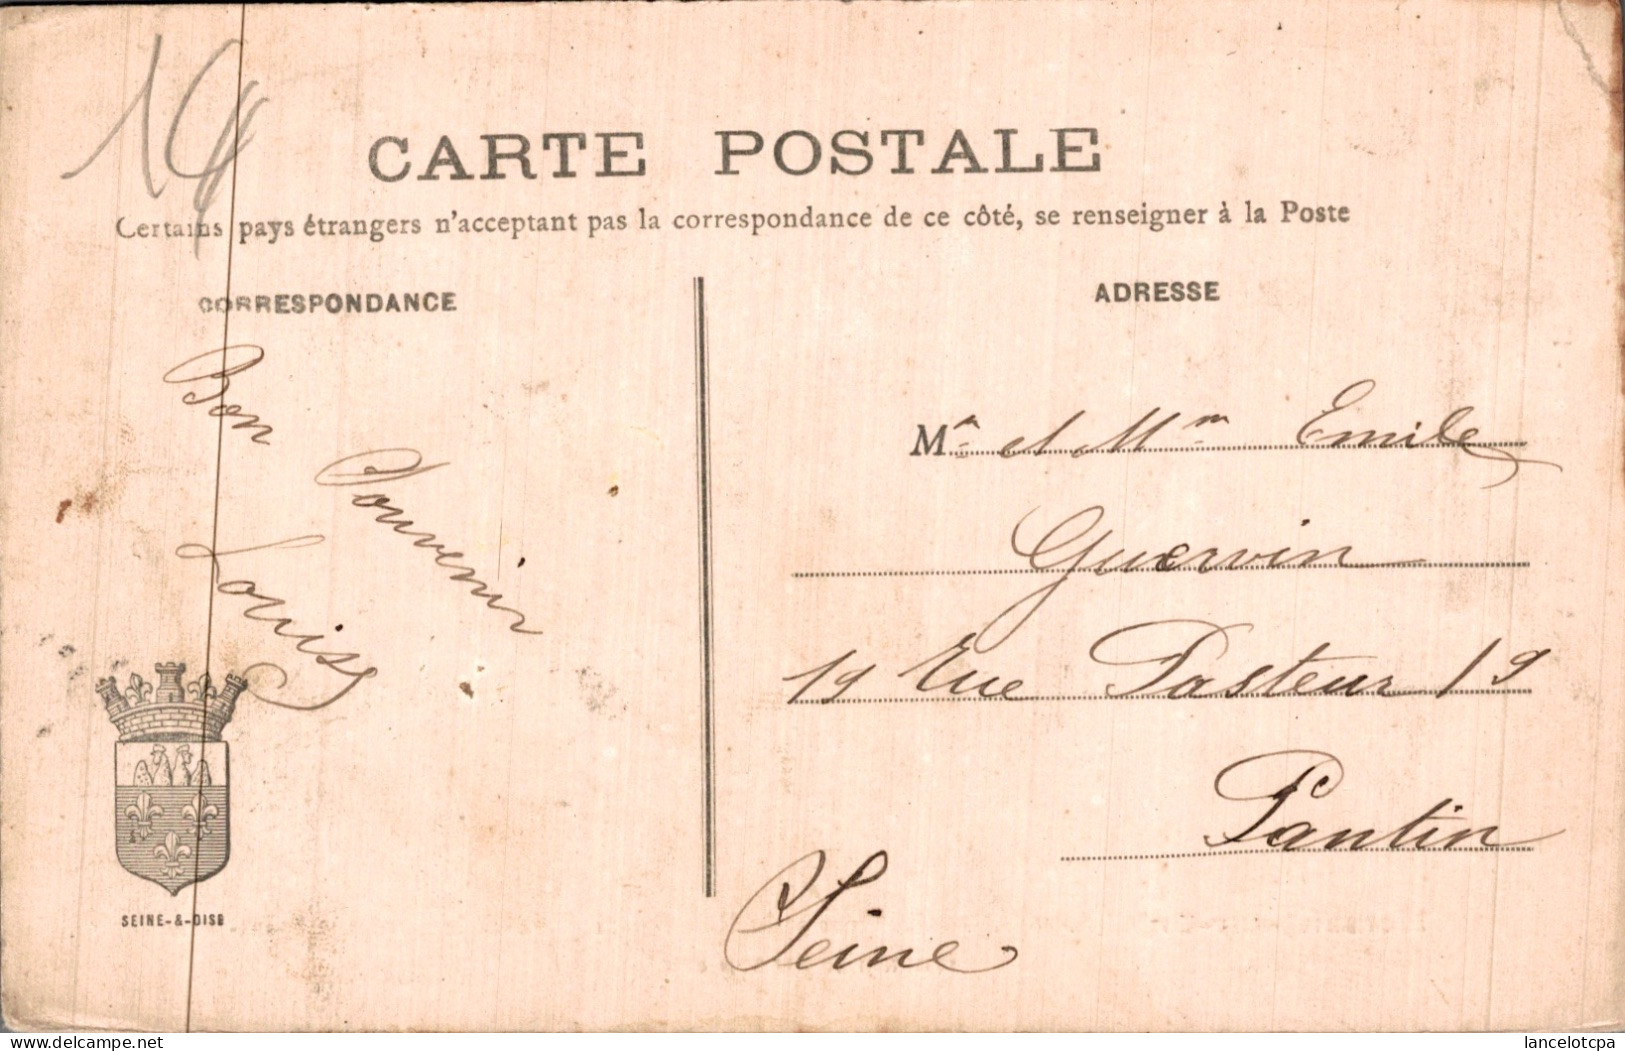 16
CARTE POSTALE
Certains pays étrangers n'acceptant pas la correspondance de ce côté, se renseigner à la Poste
CORRESPONDANCE
Bon
Souvenir
Louise
SEINE-&-OISE
ADRESSE
Mr et Mme Emile
Guervin
19 Rue Pasteur 19
Pantin
Seine
delcampe.net
lancelotcpa